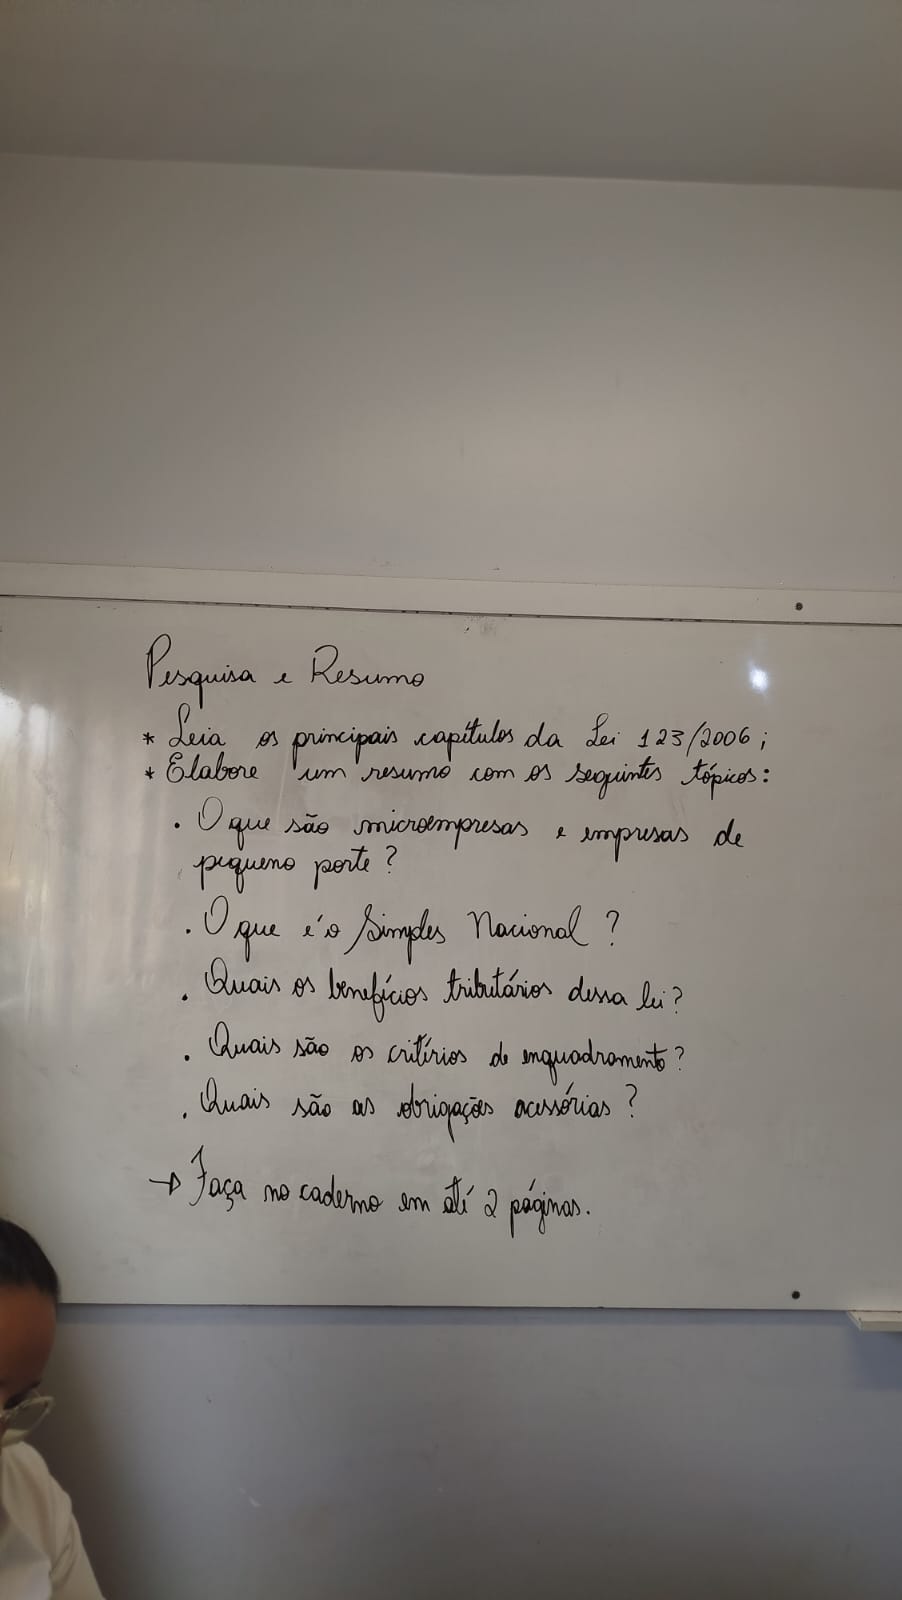 Pesquisa e Resumo
* Leia os principais capítulos da Lei 123/2006;
* Elabore um resumo com os seguintes tópicos:
. O que são microempresas e empresas de
pequeno porte?
. O que é o Simples Nacional?
. Quais os benefícios tributários dessa lei?
. Quais são os critérios de enquadramento?
. Quais são as obrigações acessórias?
→ Faça no caderno em até 2 páginas.